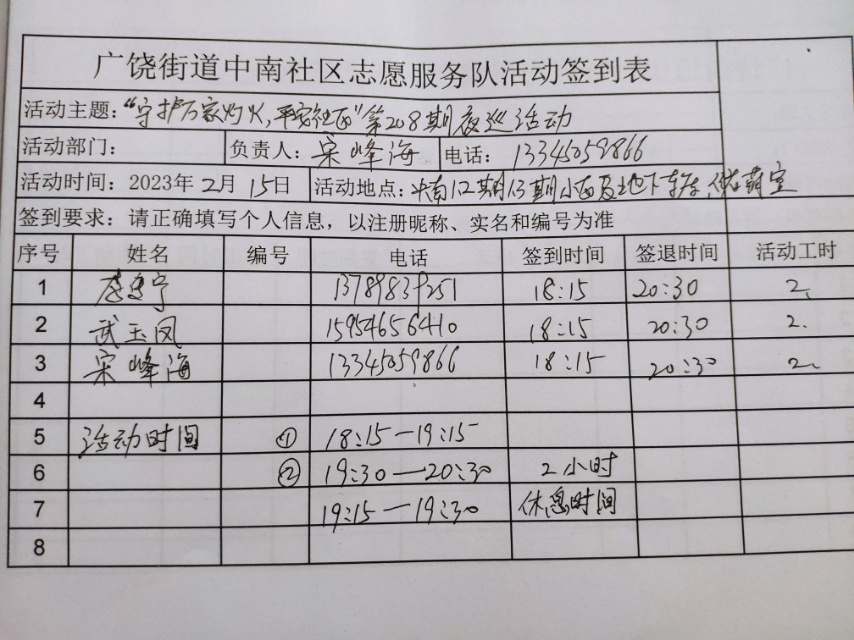 广饶街道中南社区志愿服务队活动签到表
活动主题：“守护万家灯火，平安社区”第208期夜巡活动
活动部门： 负责人：宋峰海 电话：13345059866
活动时间：2023年2月15日 活动地点：中南12期13期小区及地下车库、储
签到要求：请正确填写个人信息，以注册昵称、实名和编号为准
序号 姓名 编号 电话 签到时间 签退时间 活动工时
1 13789839251 18:15 20:30 2、
2 武玉凤 15954656410 18:15 20:30 2.
3 宋峰海 13345059866 18:15 20:30 2、
4
5 活动时间 ① 18:15—19:15
6 ② 19:30—20:30 2小时
7 19:15—19:30 休息时间
8